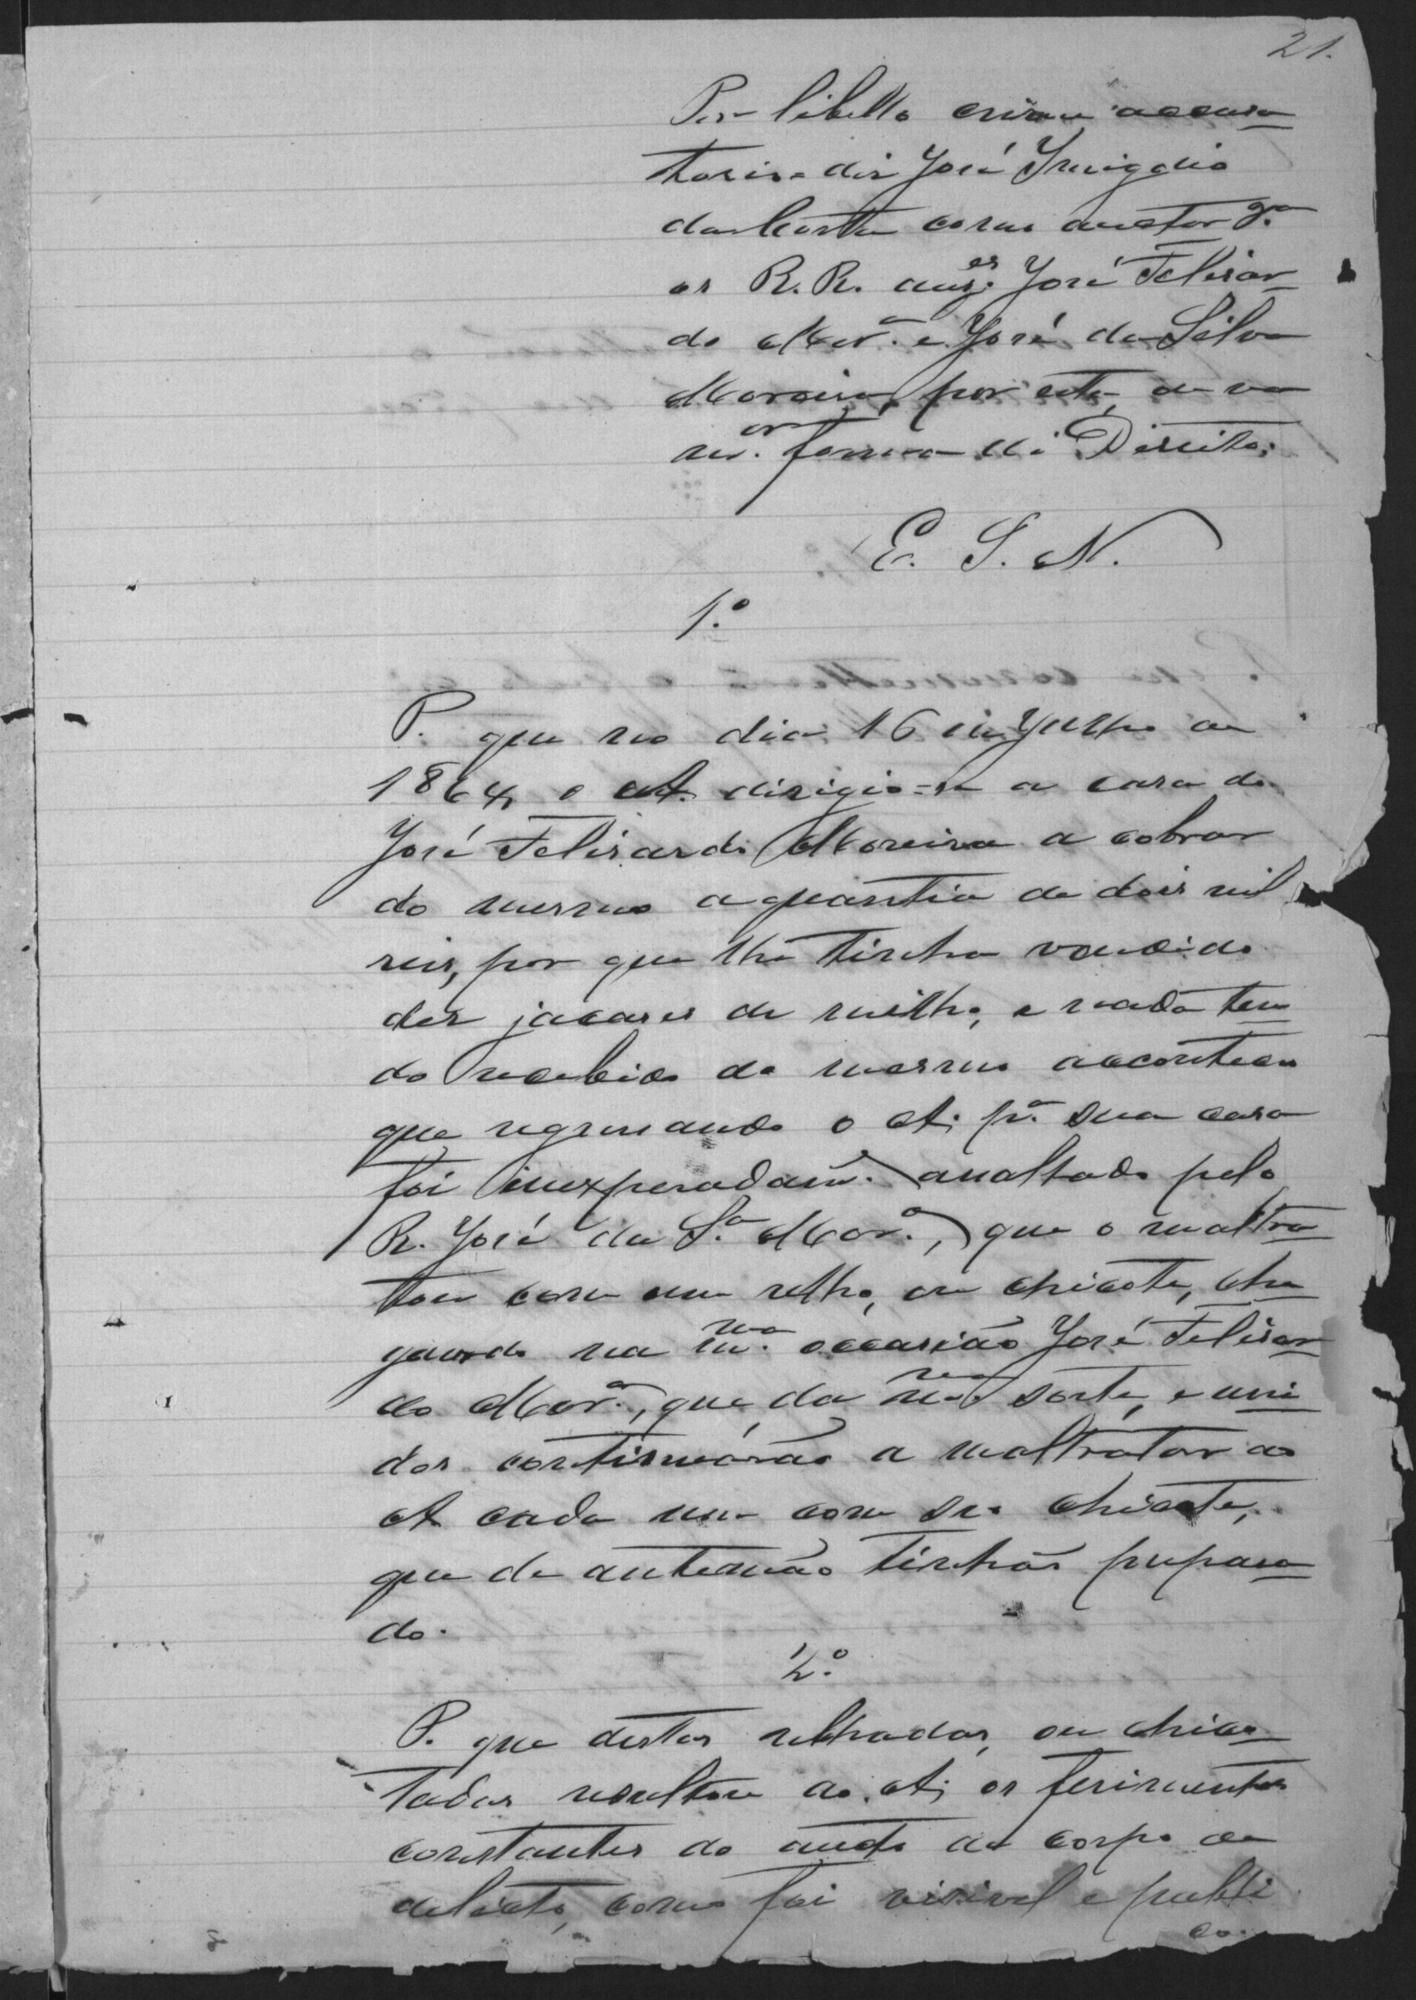 21.
Por libello crime accusa
torio diz José Emigdio
da Costa como auctor cª
os R.R. auzes. José Felisar
do Morª. e José da Silva
Moreira, por esta, e na
mor. forma de Direito;
E. S. N.
1.º
P. que no dia 16 de Julho de
1864, o A. dirigio=se a casa de
José Felisardo Moreira a cobrar
do mesmo a quantia de dois mil
reis, por que lhe tinha vendido
dos jacases de milho, e nada ten
do recebido do mesmo aconteceo
que regressando o A. pª. sua casa
foi inexperadamᵉ. assaltado pelo
R. José da Sª. Morª., que o maltra
tou com um relho, ou chicote, che
gando na mma. occasião José Felisar
do Morª., que da mma. sorte, e uni
dos continuárão a maltratar ao
A. cada um com seo chicote,
que de antemão tinhão prepara
do.
2.º
P. que destas relhadas, ou chico
tadas resultou ao A. os ferimentos
constantes do auto de corpo de
delicto, como foi visivel e publi
co.